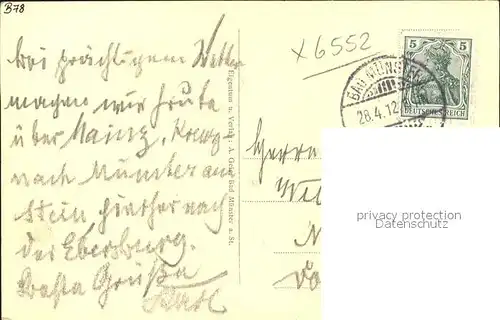 B78
x 6552
5 5
BAD MÜNSTER
28.4.12
DEUTSCHES REICH
Bei prächtigem Wetter
machen wir heute
über Mainz, Kreuz-
nach Münster am
Stein hierher nach
der Ebernburg.
Beste Grüße
Karl
Eigentum u. Verlag: A. Bad Münster a. St.
Herrn
privacy protection
Datenschutz